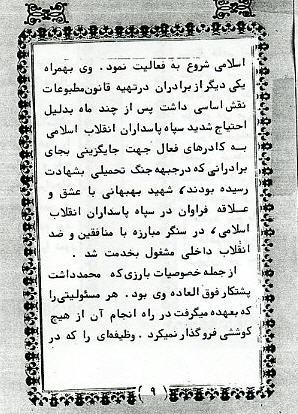 اسلامی شروع به فعالیت نمود . وی بهمراه
یکی دیگر از برادران در تهیه قانون مطبوعات
نقش اساسی داشت پس از چند ماه بدلیل
احتیاج شدید سپاه پاسداران انقلاب اسلامی
به کادرهای فعال جهت جایگزینی بجای
برادرانی که در جبهه جنگ تحمیلی بشهادت
رسیده بودند، شهید بهبهانی با عشق و
علاقه فراوان در سپاه پاسداران انقلاب
اسلامی، در سنگر مبارزه با منافقین و ضد
انقلاب داخلی مشغول بخدمت شد .
از جمله خصوصیات بارزی که محمد داشت
پشتکار فوق العاده وی بود . هر مسئولیتی را
که بعهده میگرفت در راه انجام آن از هیچ
کوششی فروگذار نمیکرد . وظیفه‌ای را که در
( ۹ )